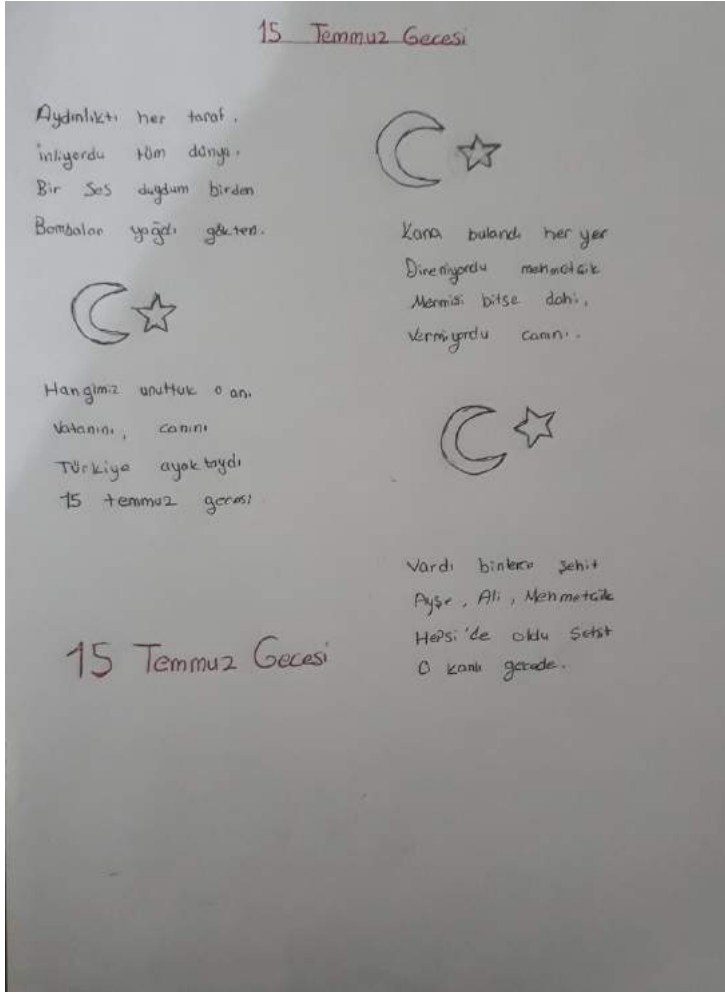 15 Temmuz Gecesi
Aydınlıktı her taraf.
inliyordu tüm dünya.
Bir Ses duydum birden
Bombalar yağdı gökten.
Hangimiz unuttuk o anı
Vatanını, canını
Türkiye ayaktaydı
15 temmuz gecesi
15 Temmuz Gecesi
Kana bulandı her yer
Direniyordu mehmetcik
Mermisi bitse dahi,
Vermiyordu canını.
Vardı binlerce şehit
Ayşe, Ali, Mehmetcik
Hepsi'de oldu
O kanlı gecede.